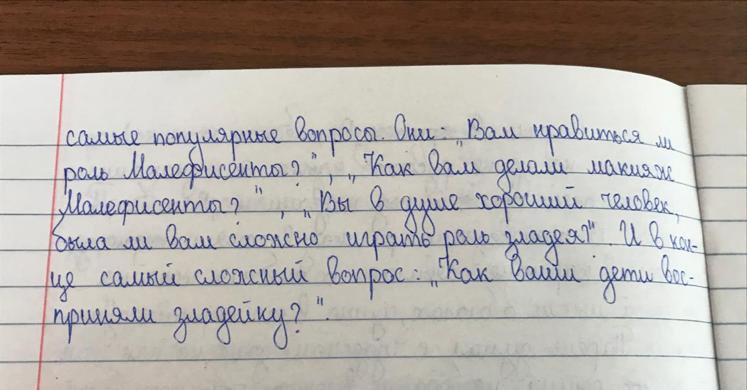 самые популярные вопросы. Они: „Вам нравиться ли
роль Малефисенты?", „Как вам делали макияж
Малефисенты?", „Вы в душе хороший человек,
была ли вам сложно играть роль злодея?". И в кон-
це самый сложный вопрос: „Как ваши дети вос-
приняли зладейку?".